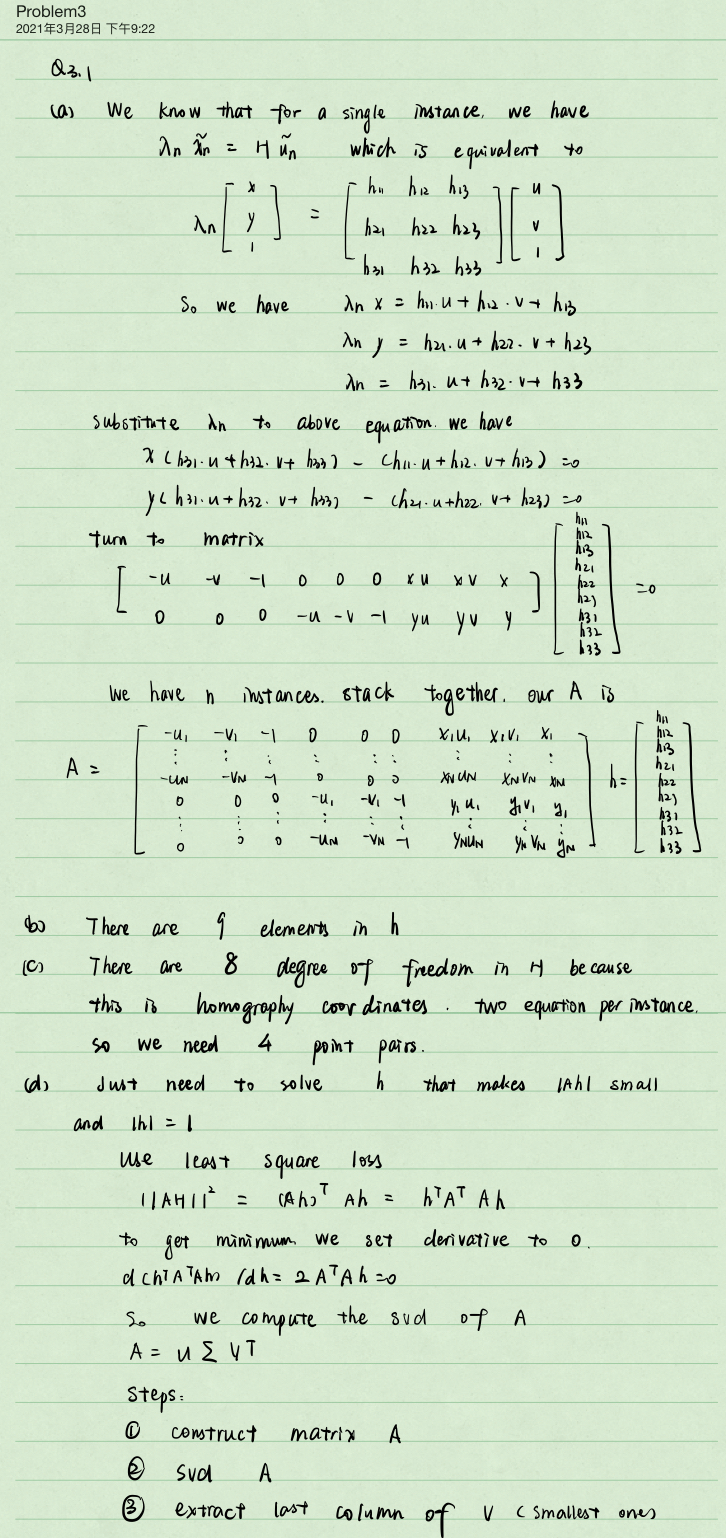 Problem3
2021年3月28日 下午9:22
Q3.1
(a) We know that for a single instance, we have
λn x̃n = H ũn which is equivalent to
λn [x y 1] = [h11 h12 h13 h21 h22 h23 h31 h32 h33] [u v 1]
So we have λn x = h11·u + h12·v + h13
λn y = h21·u + h22·v + h23
λn = h31·u + h32·v + h33
substitute λn to above equation. we have
x(h31·u + h32·v + h33) - (h11·u + h12·v + h13) = 0
y(h31·u + h32·v + h33) - (h21·u + h22·v + h23) = 0
turn to matrix
[-u -v -1 0 0 0 xu xv x
0 0 0 -u -v -1 yu yv y] [h11 h12 h13 h21 h22 h23 h31 h32 h33] = 0
We have n instances. stack together. our A is
A = [-u1 -v1 -1 0 0 0 x1u1 x1v1 x1
⋮ ⋮ ⋮ ⋮ ⋮ ⋮ ⋮
-uN -vN -1 0 0 0 xNuN xNvN xN
0 0 0 -u1 -v1 -1 y1u1 y1v1 y1
⋮ ⋮ ⋮ ⋮ ⋮ ⋮ ⋮
0 0 0 -uN -vN -1 yNuN yNvN yN] h = [h11 h12 h13 h21 h22 h23 h31 h32 h33]
(b) There are 9 elements in h
(c) There are 8 degree of freedom in H because
this is homography coordinates. two equation per instance.
so we need 4 point pairs.
(d) Just need to solve h that makes |Ah| small
and |h| = 1
Use least square loss
||AH||² = (Ah)ᵀ Ah = hᵀAᵀ Ah
to get minimum we set derivative to 0.
d(hᵀAᵀAh) /dh = 2AᵀAh = 0
So we compute the svd of A
A = U Σ Vᵀ
Steps:
① construct matrix A
② svd A
③ extract last column of V (smallest one)